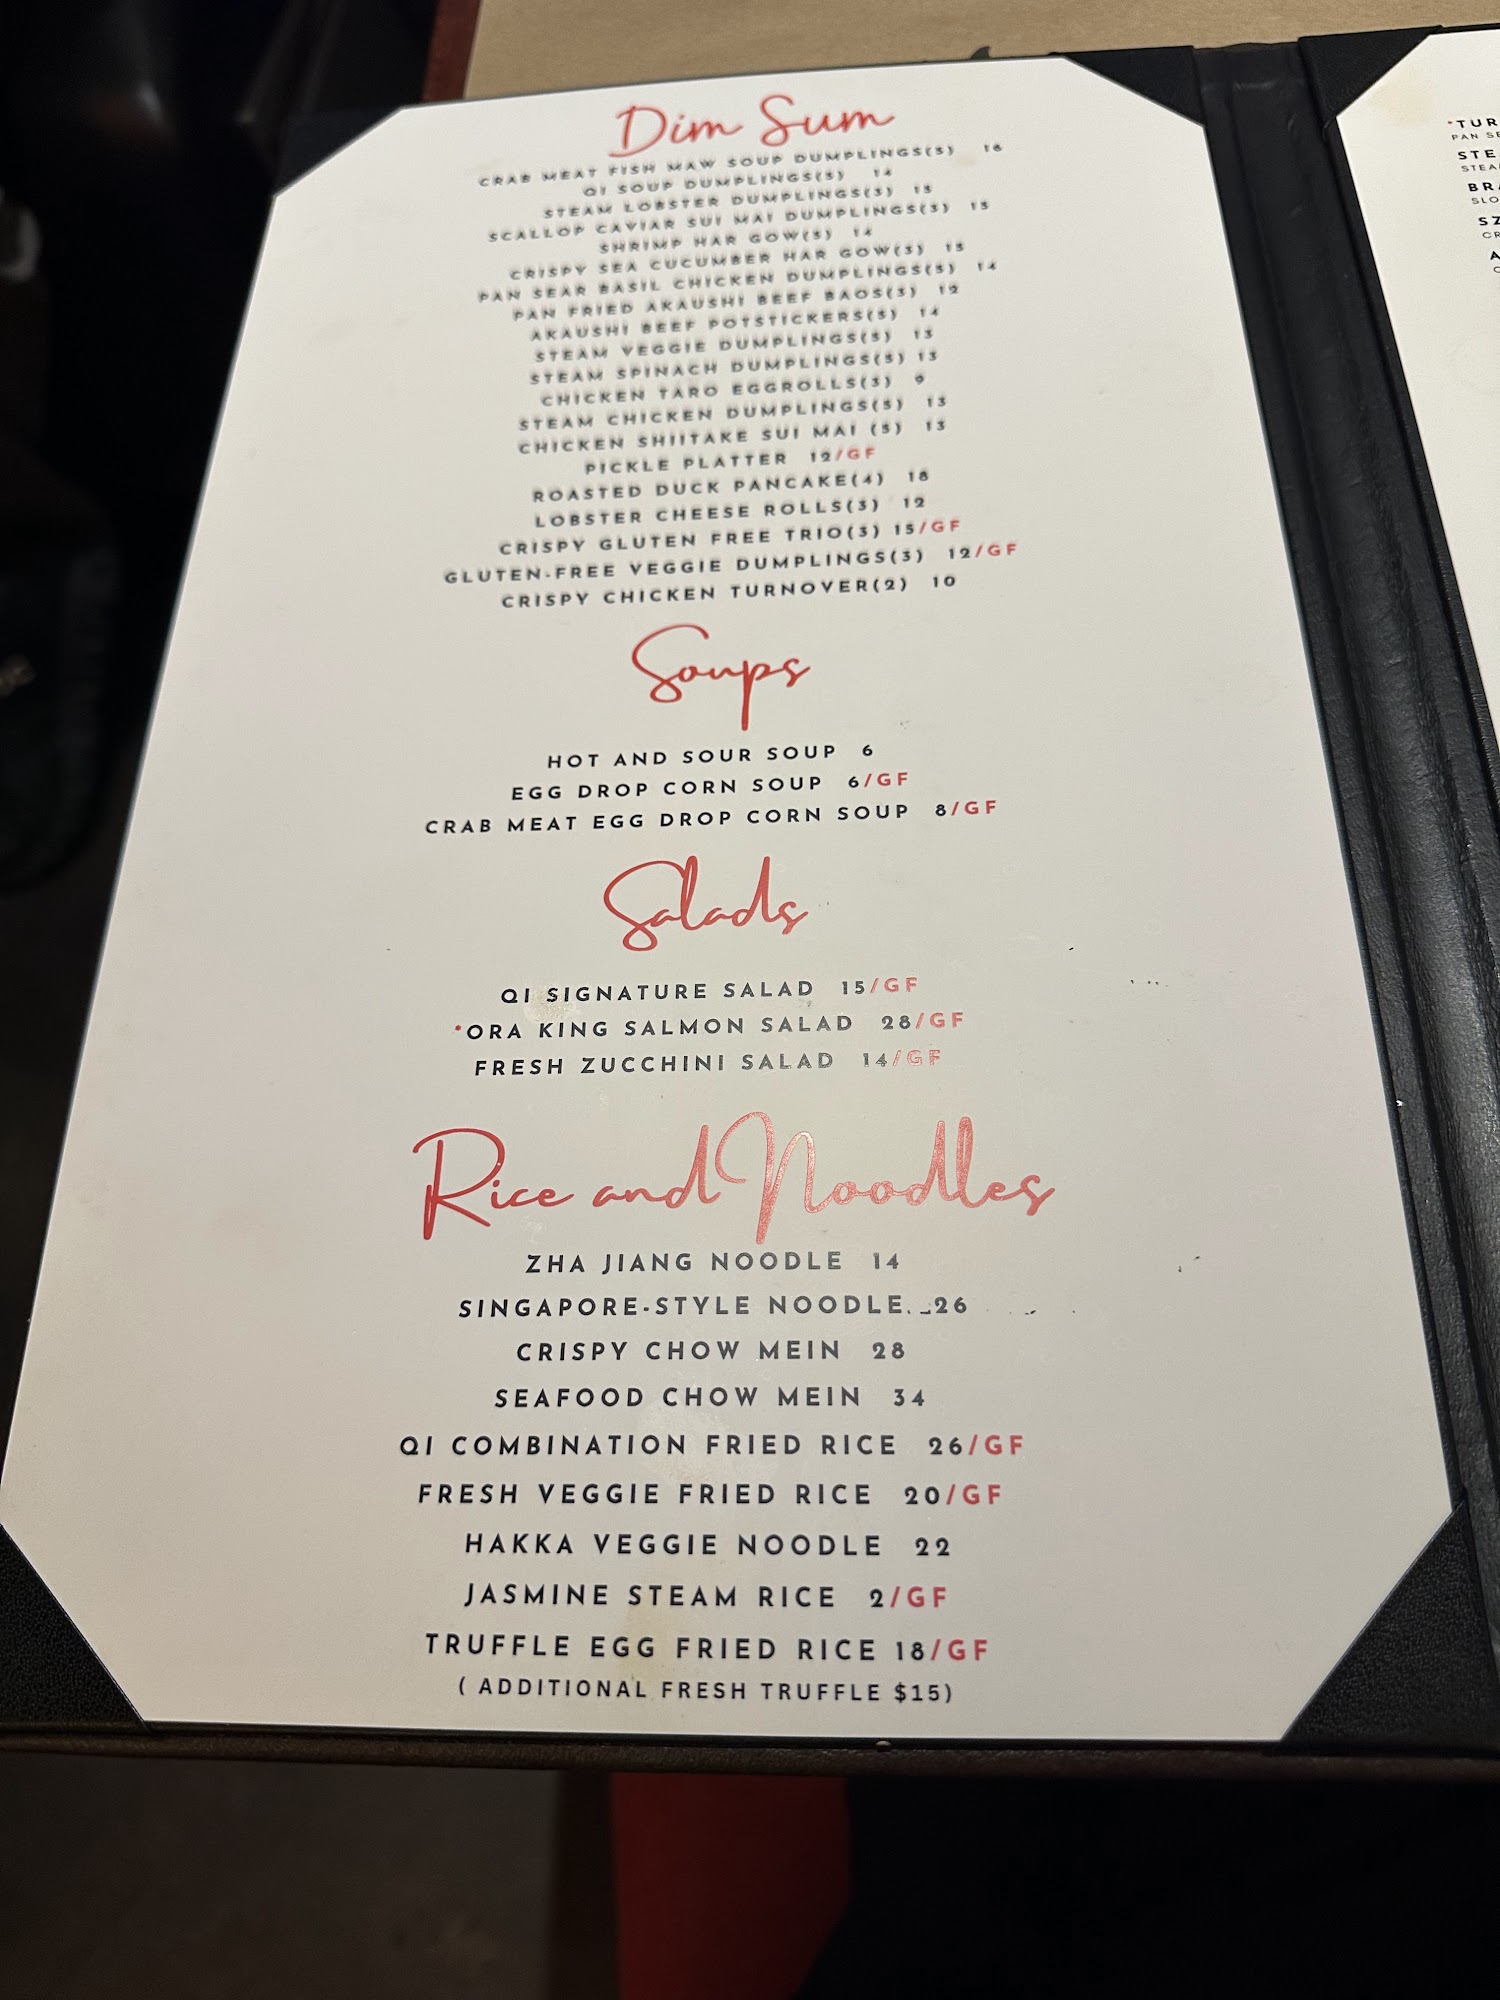 Dim Sum
CRAB MEAT FISH MAW SOUP DUMPLINGS(5) 16
QI SOUP DUMPLINGS(5) 14
STEAM LOBSTER DUMPLINGS(5) 15
SCALLOP CAVIAR SUI MAI DUMPLINGS(5) 15
SHRIMP HAR GOW(5) 14
CRISPY SEA CUCUMBER HAR GOW(5) 15
PAN SEAR BASIL CHICKEN DUMPLINGS(5) 14
PAN FRIED AKAUSHI BEEF BAOS(3) 12
AKAUSHI BEEF POTSTICKERS(5) 14
STEAM VEGGIE DUMPLINGS(5) 13
STEAM SPINACH DUMPLINGS(5) 13
CHICKEN TARO EGGROLLS(3) 9
STEAM CHICKEN DUMPLINGS(5) 13
CHICKEN SHIITAKE SUI MAI (5) 13
PICKLE PLATTER 12/GF
ROASTED DUCK PANCAKE(4) 18
LOBSTER CHEESE ROLLS(3) 12
CRISPY GLUTEN FREE TRIO(3) 15/GF
GLUTEN-FREE VEGGIE DUMPLINGS(3) 12/GF
CRISPY CHICKEN TURNOVER(2) 10
Soups
HOT AND SOUR SOUP 6
EGG DROP CORN SOUP 6/GF
CRAB MEAT EGG DROP CORN SOUP 8/GF
Salads
QI SIGNATURE SALAD 15/GF
*ORA KING SALMON SALAD 28/GF
FRESH ZUCCHINI SALAD 14/GF
Rice and Noodles
ZHA JIANG NOODLE 14
SINGAPORE-STYLE NOODLE 26
CRISPY CHOW MEIN 28
SEAFOOD CHOW MEIN 34
QI COMBINATION FRIED RICE 26/GF
FRESH VEGGIE FRIED RICE 20/GF
HAKKA VEGGIE NOODLE 22
JASMINE STEAM RICE 2/GF
TRUFFLE EGG FRIED RICE 18/GF
( ADDITIONAL FRESH TRUFFLE $15)
*TUR
PAN SE
STE
STEA
BRA
SLO
SZ
CR
A